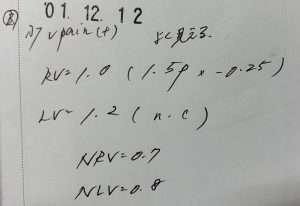 '01. 12. 12
pain(+) よく見える
RV=1.0 (1.5p x -0.25)
LV=1.2 (n.c)
NRV=0.7
NLV=0.8